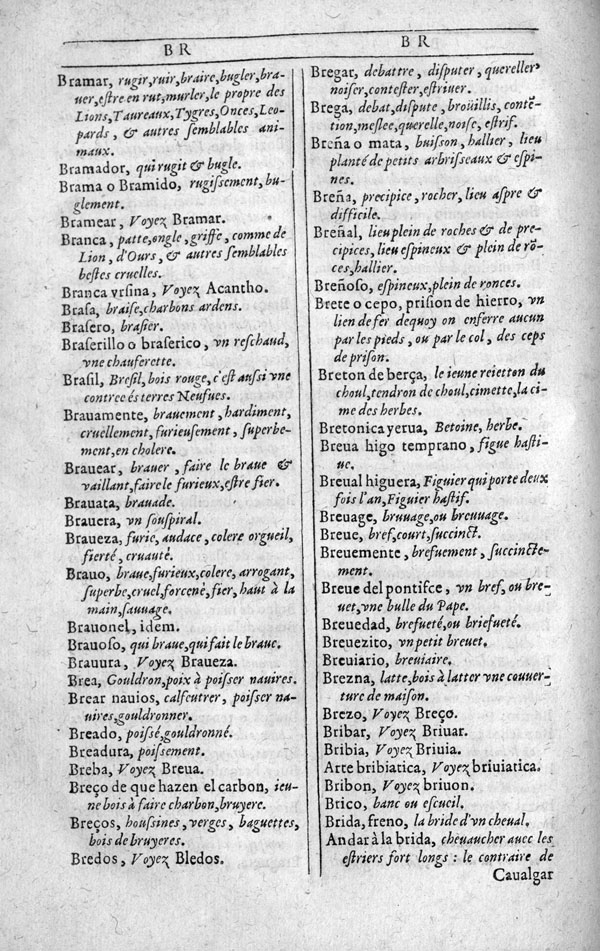 BR
Bramar, rugir, ruir, braire, bugler, bra-
uer, estre en rut, murler, le propre des
Lions, Taureaux, Tygres, Onces, Leo-
pards, & autres semblables ani-
maux.
Bramador, qui rugit & bugle.
Brama o Bramido, rugissement, bu-
glement.
Bramear, Voyez Bramar.
Branca, patte, ongle, griffe, comme de
Lion, d'Ours, & autres semblables
bestes cruelles.
Branca vrsina, Voyez Acantho.
Brasa, braise, charbons ardens.
Brasero, brasier.
Braserillo o braserico, vn reschaud,
vne chauferette.
Brasil, Bresil, bois rouge, c'est aussi vne
contree és terres Neufues.
Brauamente, brauement, hardiment,
cruellement, furieusement, superbe-
ment, en cholere.
Brauear, brauer, faire le braue &
vaillant, faire le furieux, estre fier.
Brauata, brauade.
Brauera, vn souspiral.
Braueza, furie, audace, colere orgueil,
fierté, cruauté.
Brauo, braue, furieux, colere, arrogant,
superbe, cruel, forcené, fier, haut à la
main, sauuage.
Brauonel, idem.
Brauoso, qui braue, qui fait le braue.
Brauura, Voyez Braueza.
Brea, Gouldron, poix à poisser nauires.
Brear nauios, calfeutrer, poisser na-
uires, gouldronner.
Breado, poissé, gouldronné.
Breadura, poissement.
Breba, Voyez Breua.
Breço de que hazen el carbon, ieu-
ne bois à faire charbon, bruyere.
Breços, houssines, verges, baguettes,
bois de bruyeres.
Bredos, Voyez Bledos.
BR
Bregar, debattre, disputer, quereller,
noiser, contester, estriuer.
Brega, debat, dispute, broüillis, contẽ-
tion, meslee, querelle, noise, estrif.
Breña o mata, buisson, hallier, lieu
planté de petits arbrisseaux & espi-
nes.
Breña, precipice, rocher, lieu aspre &
difficile.
Breñal, lieu plein de roches & de pre-
cipices, lieu espineux & plein de rõ-
ces, hallier.
Breñoso, espineux, plein de ronces.
Brete o cepo, prision de hierro, vn
lien de fer dequoy on enferre aucun
par les pieds, ou par le col, des ceps
de prison.
Breton de berça, le ieune reietton du
choul, tendron de choul, cimette, la ci-
me des herbes.
Bretonica yerua, Betoine, herbe.
Breua higo temprano, figue hasti-
ue.
Breual higuera, Figuier qui porte deux
fois l'an, Figuier hastif.
Breuage, bruuage, ou breuuage.
Breue, bref, court, succinct.
Breuemente, brefuement, succincte-
ment.
Breue del pontifce, vn bref, ou bre-
uet, vne bulle du Pape.
Breuedad, brefueté, ou briefueté.
Breuezito, vn petit breuet.
Breuiario, breuiaire.
Brezna, latte, bois à latter vne couuer-
ture de maison.
Brezo, Voyez Breço.
Bribar, Voyez Briuar.
Bribia, Voyez Briuia.
Arte bribiatica, Voyez briuiatica.
Bribon, Voyez briuon.
Brico, banc ou escueil.
Brida, freno, la bride d'vn cheual.
Andar à la brida, cheuaucher auec les
estriers fort longs : le contraire de
Caualgar